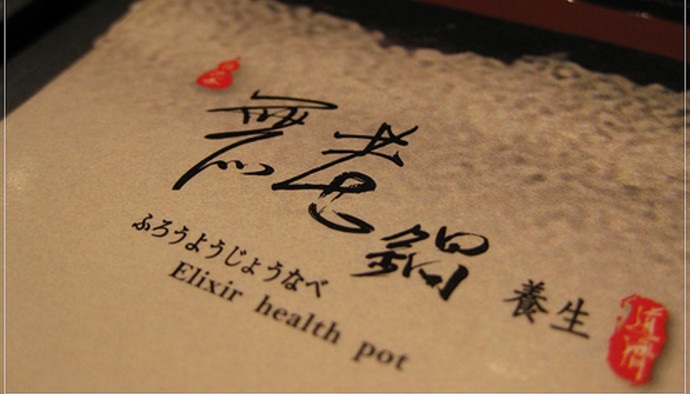 無老鍋
養生
ふろうようじょうなべ
Elixir health pot